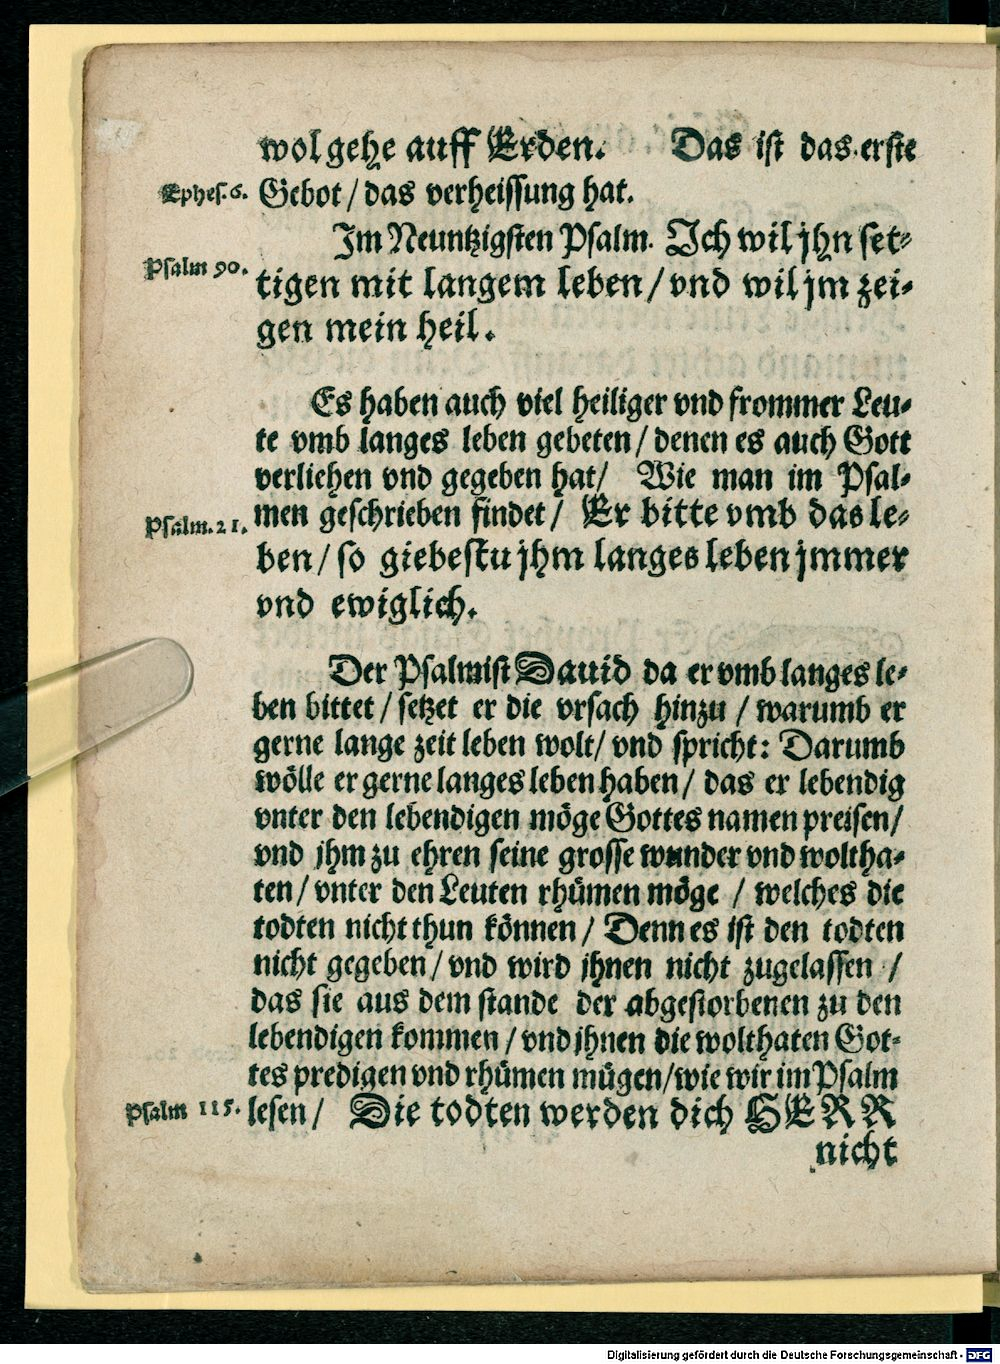 wol gehe auff Erden. Das ist das erste
Ephes. 6. Gebot / das verheissung hat.
Im Neuntzigsten Psalm. Ich wil jhn set⸗
Psalm 90.
tigen mit langem leben / vnd wil jm zei⸗
gen mein heil.
Es haben auch viel heiliger vnd frommer Leu⸗
te vmb langes leben gebeten / denen es auch Gott
verliehen vnd gegeben hat / Wie man im Psal⸗
Psalm. 21. men geschrieben findet / Er bitte vmb das le⸗
ben / so giebestu jhm langes leben jmmer
vnd ewiglich.
Der Psalmist Dauid da er vmb langes le⸗
ben bittet / setzet er die vrsach hinzu / warumb er
gerne lange zeit leben wolt / vnd spricht: Darumb
wölle er gerne langes leben haben / das er lebendig
vnter den lebendigen möge Gottes namen preisen /
vnd jhm zu ehren seine grosse wunder vnd woltha⸗
ten / vnter den Leuten rhümen möge / welches die
todten nicht thun können / Denn es ist den todten
nicht gegeben / vnd wird jhnen nicht zugelassen /
das sie aus dem stande der abgestorbenen zu den
lebendigen kommen / vnd jhnen die wolthaten Got⸗
tes predigen vnd rhümen mügen / wie wir im Psalm
Psalm 115. lesen / Die todten werden dich HERR
nicht
Digitalisierung gefördert durch die Deutsche Forschungsgemeinschaft - DFG